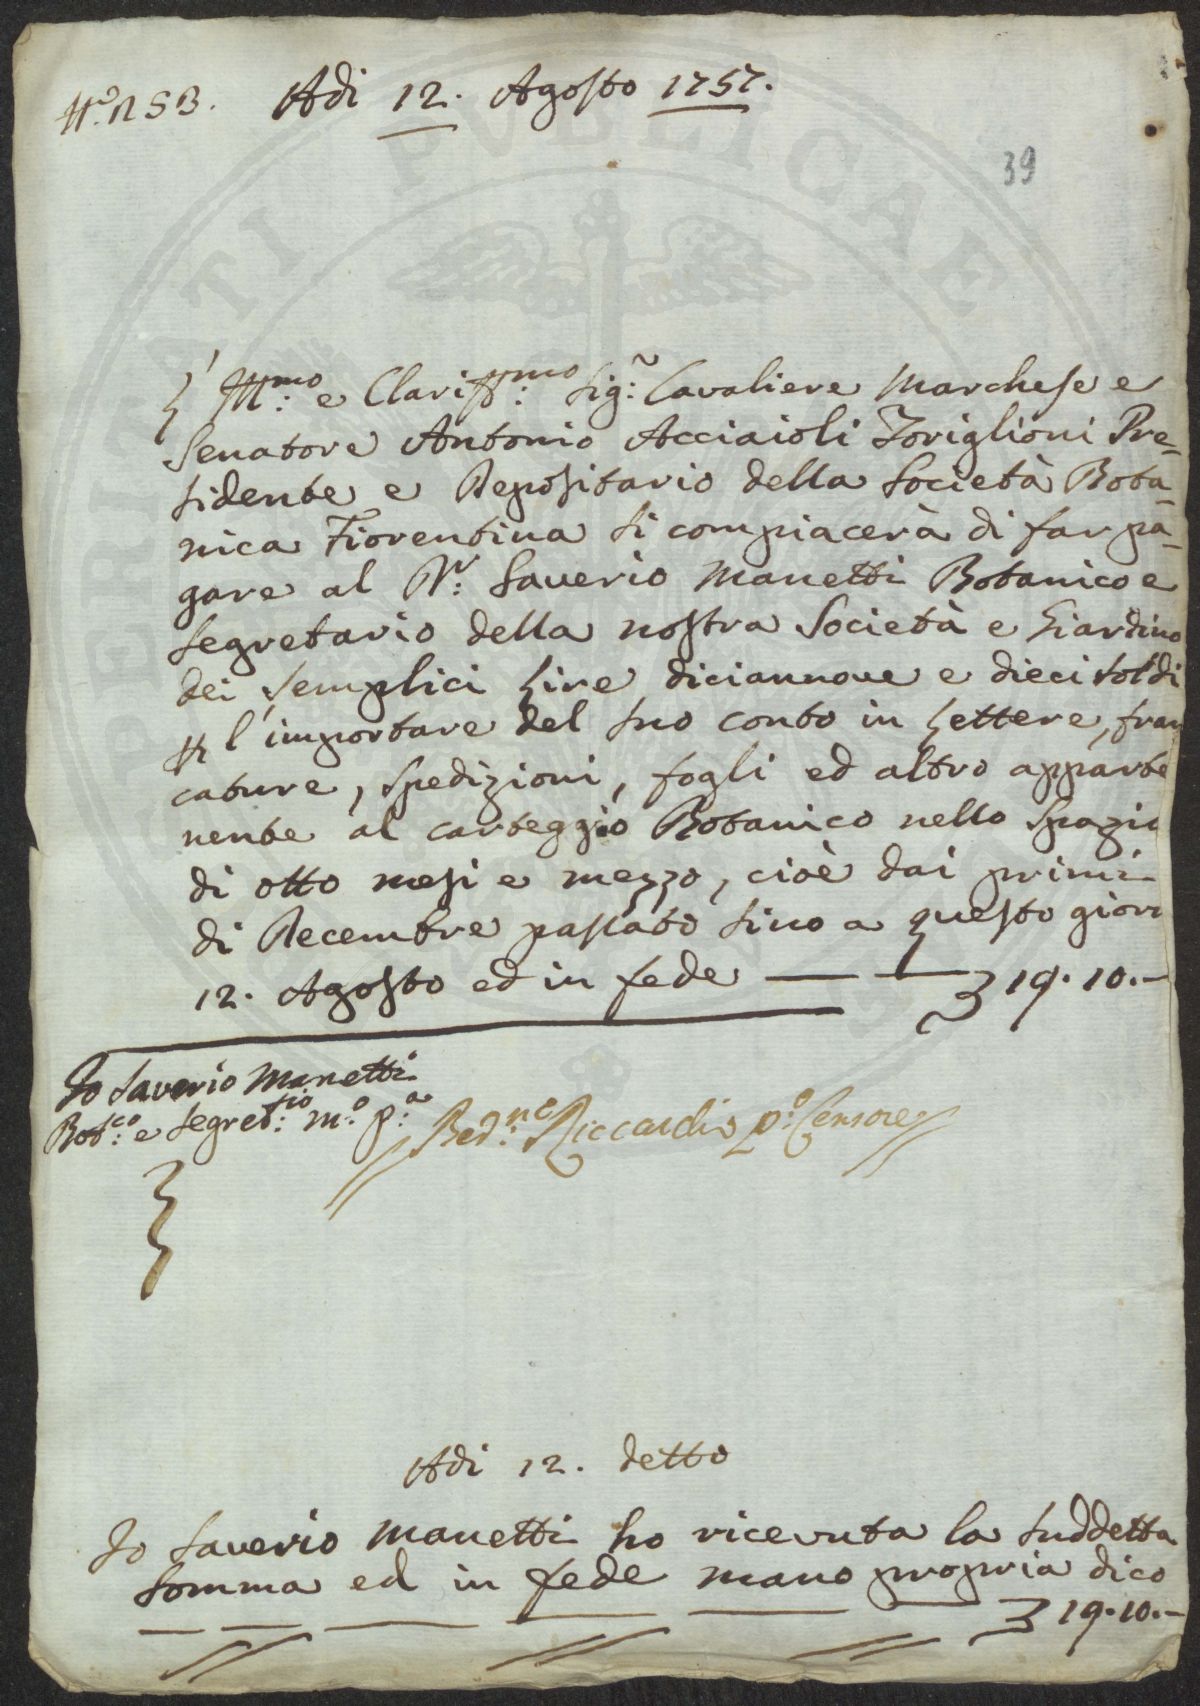 Adi 12. Agosto 1757.
39
Ill:mo e Clariss:mo Sig:r Cavaliere Marchese e
Senatore Antonio Acciaioli Toriglioni Pre-
sidente e Depositario della Società Bota-
nica Fiorentina si compiacerà di far pa-
gare al Dr: Saverio Manetti Botanico e
Segretario della nostra Società e Giardino
dei Semplici Lire diciannove e dieci soldi
l'importare del suo conto in Lettere, fran
cature, Spedizioni, fogli ed altro apparte
nente al carteggio Botanico nello Spazio
di otto mesi e mezzo, cioè dai primi
di Decembre passato sino a questo giorn
12. Agosto ed in fede 19.10.-
Io Saverio Manetti
Bot:co e Segret:rio m:o p:a
Bed:ne Riccardi p:o Censore
Adi 12. detto
Io Saverio Manetti ho ricevuta la suddetta
Somma ed in fede mano propria dico
19.10.-